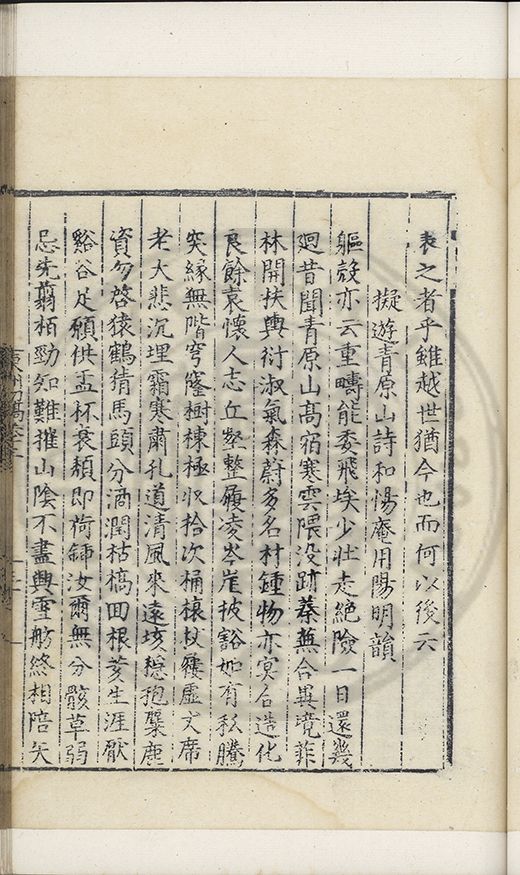 表之者乎雖越世猶今也而何以後六
擬遊青原山詩和惕庵用陽明韻
軀殼亦云重疇能委飛埃少壯走絕險一日還幾
廻昔聞青原山高宿寒雲隈没跡蓁蕪合異境菲
林開扶輿衍淑氣森蔚多名材鍾物亦冥合造化
良餘哀懷人志丘壑整屨凌岑崖披豁如有私騰
突緣無階穹窿樹棟極収拾次桷榱杖藜虛丈席
老大悲沉埋霜寒肅孔道清風來遠垓穩孢襲塵
資勿啓猿鶴猜馬頭分滴潤枯槁回根荄生涯厭
谿谷足願供盃杯衰頹即荷鍤汝爾無分骸草弱
忌先翦栢勁知難摧山陰不盡興雪舫終相陪矢